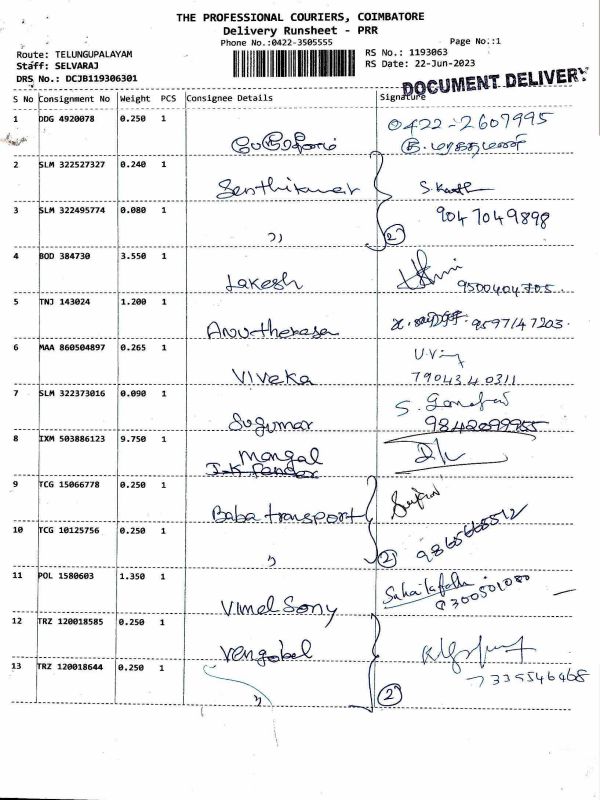 THE PROFESSIONAL COURIERS, COIMBATORE
Delivery Runsheet - PRR
Phone No.:0422-3505555
Page No.:1
Route: TELUNGUPALAYAM
RS No.: 1193063
Staff: SELVARAJ
RS Date: 22-Jun-2023
DRS No.: DCJB119306301
DOCUMENT DELIVERY
S No Consignment No Weight PCS Consignee Details Signature
1 DDG 4920078 0.250 1 0422-2607995
2 SLM 322527327 0.240 1 Senthilkumar
3 SLM 322495774 0.080 1 9047049898
" 2
4 BOD 384730 3.550 1
Lakesh 9500404705
5 TNJ 143024 1.200 1
Anutheresa 9597147203
6 MAA 860504897 0.265 1
Viveka 7904340311
7 SLM 322373016 0.090 1
Sugumar 9842099955
8 IXM 503886123 9.750 1
Mangal
9 TCG 15066778 0.250 1
Baba transport
10 TCG 10125756 0.250 1
" 2 9865665512
11 POL 1580603 1.350 1
Vimel Sony 9300501080
12 TRZ 120018585 0.250 1
Vengobal
13 TRZ 120018644 0.250 1 7335546468
" 2